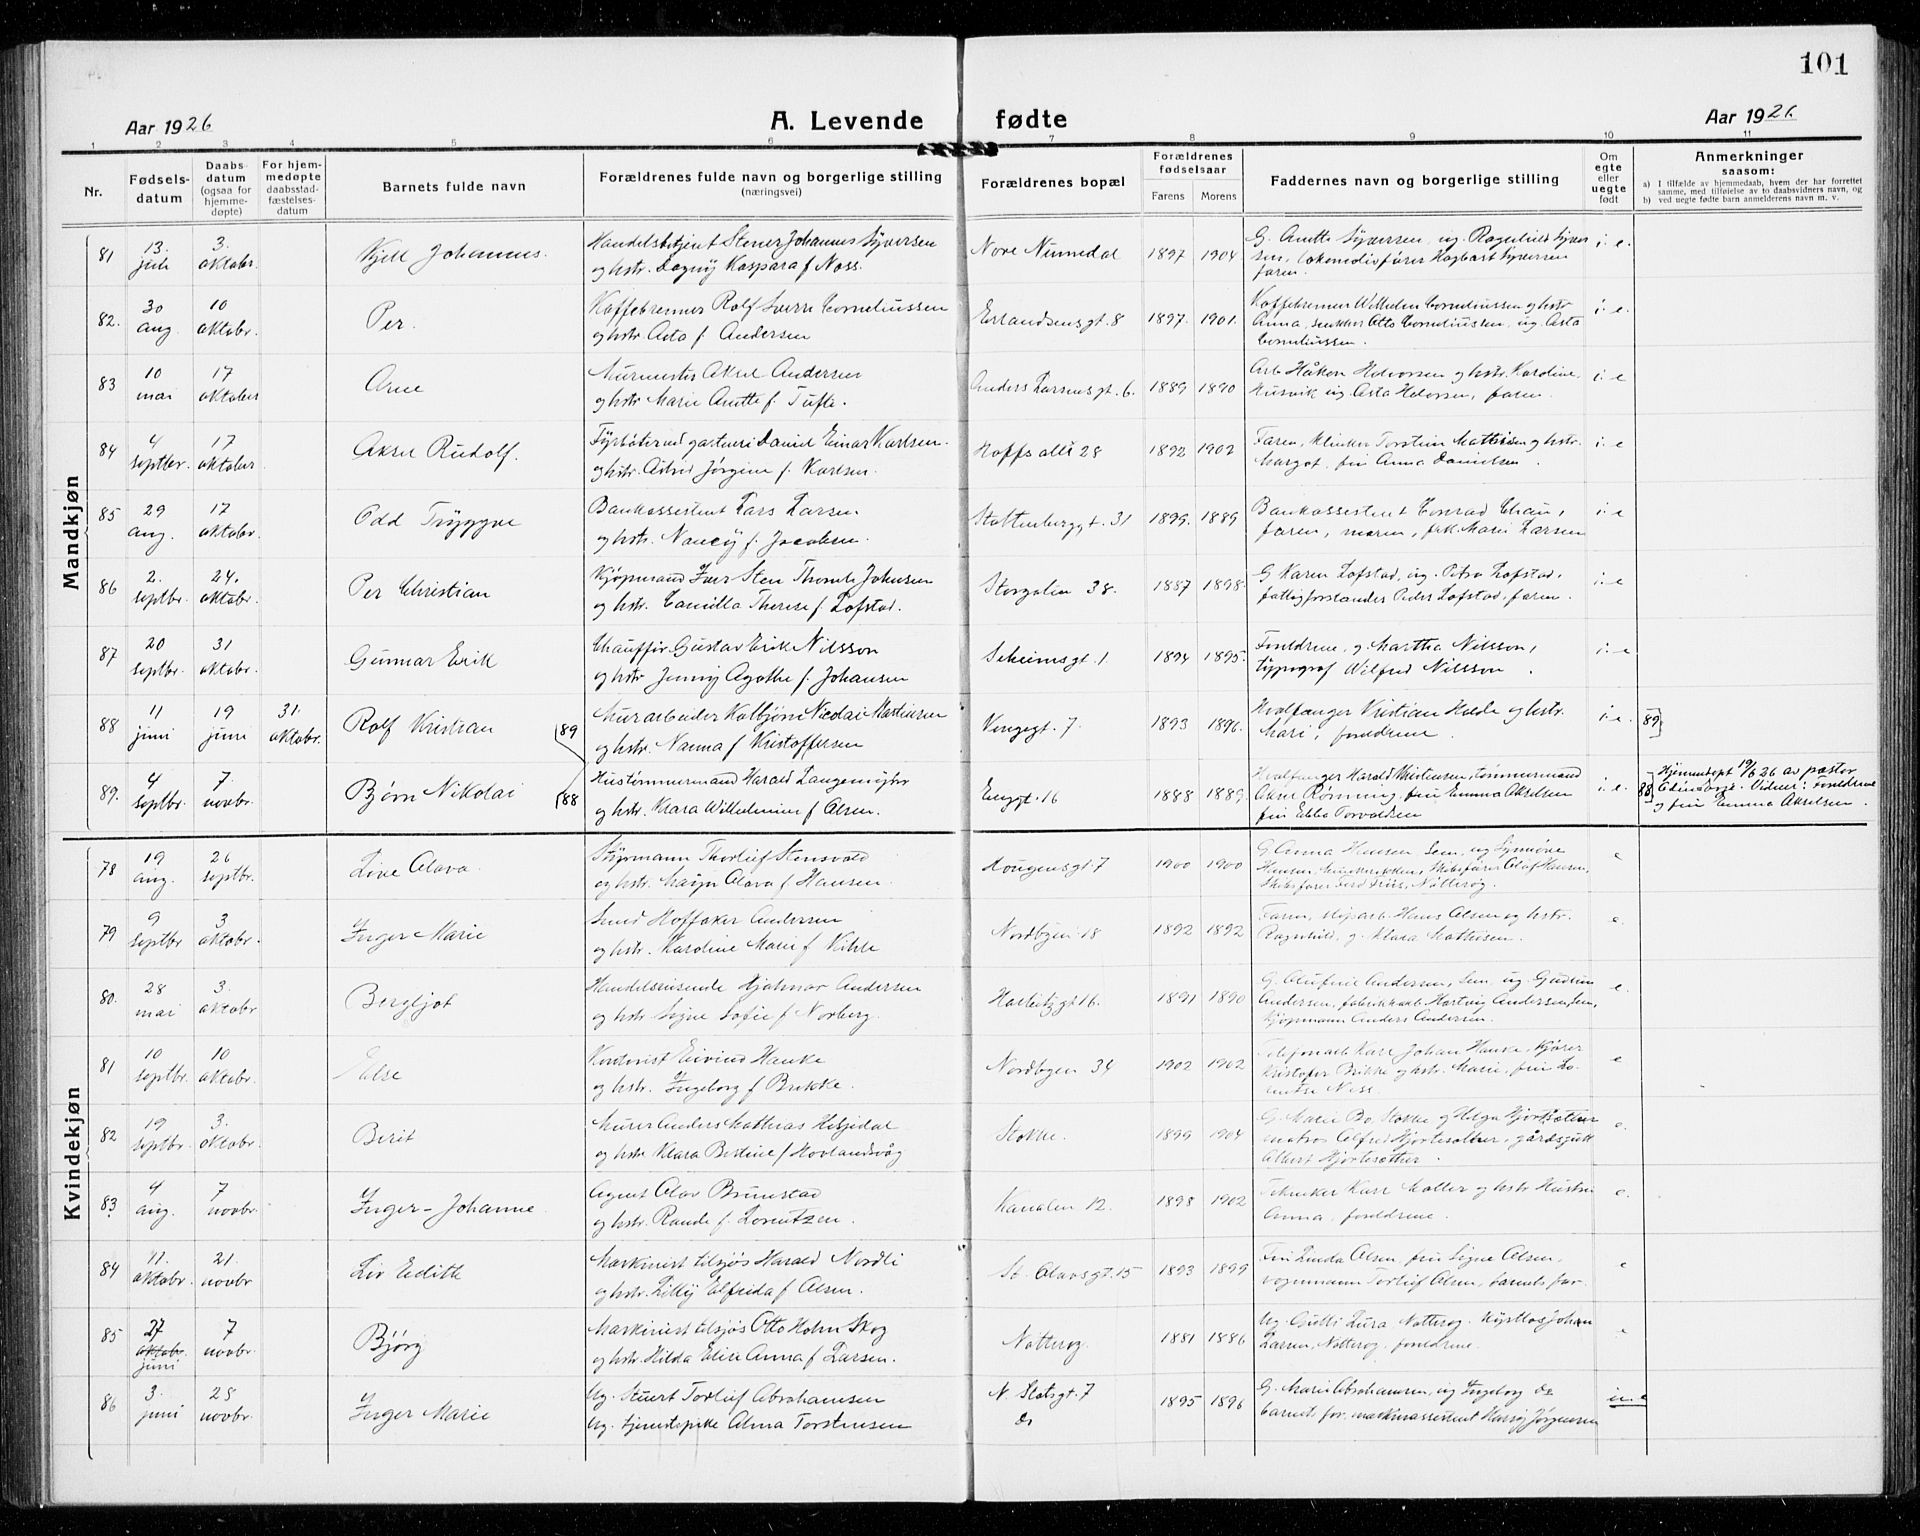 101
Aar 1926
A. Levende fødte
Aar 1926.
1 2 3 4 5 6 7 8 9 10 11
Nr.
Fødsels-
datum
Daabs
datum
(ogsaa for
hjemme-
døpte)
For hjem-
medøpte
daabsstad-
fæstelses-
datum
Barnets fulde navn
Forældrenes fulde navn og borgerlige stilling
(næringsvei)
Forældrenes bopæl
Forældrenes
fødselsaar
Farens Morens
Faddernes navn og borgerlige stilling
Om
egte
eller
uegte
født
Anmerkninger
saasom:
a) I tilfælde av hjemmedaab, hvem der har forrettet
samme, med tilføielse av to daabsvidners navn, og
b) ved uegte fødte barn anmelderens navn m. v.
Mandkjøn
81 13. juli 3. oktober. Kjell Johannes.
Handelsbetjent Stener Johannes Syversen
og hstr. Dagny Kaspara f. Noss.
Nore Numedal 1897 1904
G. Anette Syversen, ug. Ragnhild Syver
sen, lokomotivfører Hagbart Syversen
faren.
i. e.
82. 30 aug. 10 oktobr. Per.
Kaffebrenner Rolf Sverre Corneliussen
og hstr. Asta f. Andersen
Erlandsensgt. 8 1897. 1901.
Kaffebrenner Wilhelm Corneliussen og hstr
Anna, snekker Otto Corneliussen, ug. Asta
Corneliussen.
i. e.
83 10 mai 17 oktober Arne
Murmester Aksel Andersen
og hstr Marie Anette f. Tufte.
Anders Larsensgt. 6. 1889 1890
Arb Håkon Halvorsen og hstr. Karoline,
Husvik ug. Asta Halvorsen, faren.
i. e
84 4 septbr. 17 oktober Aksel Rudolf.
Fyrbøter ved gartneri Daniel Einar Karlsen.
og hstr. Astrid Jørgine f. Karlsen.
Hoffs alle 28 1892 1902
Faren, klinker Torstein Mathisen og hstr.
Margot, fru Anna Danielsen
i. e
85 29 aug. 17 oktobr. Odd Tryggve
Bankassistent Lars Larsen
og hstr. Nancy f. Jacobsen.
Stoltenberggt. 31 1899. 1889
Bankassistent Conrad Chau,
faren, moren, frk. Marie Larsen
i. e
86 2. septbr. 24. oktobr. Per Christian
Kjøpmand Iver Sten Thomle Johnsen
og hstr. Camilla Therese f. Lofstad.
Storgaten 38. 1887 1898.
G Karen Lofstad, ug. Petra Lofstad,
fattigforstander Peder Lofstad, faren.
i. e
87 20 septbr. 31 oktobr. Gunnar Erik
Chauffør Gustav Erik Nilsson
og hstr Jenny Agathe f. Johansen
gt. 1 1894 1895.
Foreldrene, g. Martha Nilsson,
typograf Wilfred Nilsson.
i. e
88 11 juni 19 juni 31. oktobr. Rolf Kristian (89
Murarbeider Kolbjørn Nicolai Martinsen
og hstr. Nanna f Kristoffersen
gt. 7 1893 1896.
Hvalfanger Kristian Hilde og hstr.
Mari, foreldrene.
i. e. [89]
89. 4 septbr. 7. novbr. Bjørn Nikolai (88
Hustømmermand Harald Langemyhr
og hstr. Klara Wilhelmine f Olsen.
Enggt. 16 1888 1889.
Hvalfanger Harald Kristensen, tømmermand
Aksel Rønning, fru Emma Akselsen
fru Ebba Torvaldsen
i. e.
[88] Hjemmedøpt 19/6 26 av pastor
Vidner: Foreldrene
og fru Emma Akselsen.
Kvindekjøn
78 19 aug. 26 septbr. Live Olava.
Styrmann Thorleif Stensvold
og hstr. Olava f Hansen.
Haugensgt 7 1900 1900
G Anna Hansen, Sem, ug Synnøve
Hansen, skibsfører Olaf Hansen,
Skibsfører Ferd Friis, Nøtterøy.
e
79 9 septbr 3 oktobr. Inger Marie
Smed Hoffaker Andersen
og hstr. Karoline Marie f Kihle
Nordbyen 18 1892 1892
Faren, sliparb. Hans Olsen og hstr.
Ragnhild, g. Klara Mathisen.
e.
80. 28 mai 3. oktobr Bergljot
Handelsreisende Hjalmar Andersen
og hstr. Signe Sofie f Norberg.
gt 16. 1891 1890
G. Olufine Andersen, Sem, ug. Gudrun
Andersen, fabrikkarb. Hartvig Andersen, Sem,
Kjøpmann Anders Andersen.
e.
81 10 septbr. 10 oktobr. Else
Kontorist Eivind Hanke
og hstr. Ingeborg f Brekke.
Nordbyen 34 1902 1902
Telefonarb Karl Johan Hanke, kjører
Kristofer Brekke og hstr. Marie, fru
Ness.
e
82 19 septbr. 3. oktobr. Berit
Murer Anders Mathias
og hstr Klara Bertine f Hovlandsvåg
Stokke. 1899 1904
G. Marie Bo, Stokke g Helga Hjortsæter
matros Alfred, gårdsgutt
Albert.
e.
83. 4 aug. 7 novbr. Inger-Johanne.
Agent Olav Brunstad
og hstr. Randi f. Lorentzen.
Kanalen 12. 1898 1902
Tekniker Karl Møller og hstr
Anna, foreldrene.
e.
84 11. oktobr. 21. novbr Liv Edith
Maskinist tilsjøs Harald Nordli
og hstr. Lilly Elfrida f Olsen.
St. Olavsgt. 15 1893 1899
Fru Linda Olsen, fru Signe Olsen,
vognmann Torleif Olsen, barnets far.
e
85 27 oktobr. juni 7 novbr. Bjørg
Maskinist tilsjøs Otto Holm Skog
og hstr. Hilda Elise Anna f Larsen.
Nøtterøy. 1881 1886
Ug. Lura Nøtterøy. Johan
Larsen, Nøtterøy. foreldrene.
e
86 3. juni 28 novbr. Inger Marie
Ug. Stuert Torleif Abrahamsen
Ug. tjenestepike Alma Torstensen
N. Slotsgt. 7
do 1895 1896
G. Marie Abrahamsen, ug Ingeborg do
barnets far, maskinassistent Harry Jørgensen
u. e